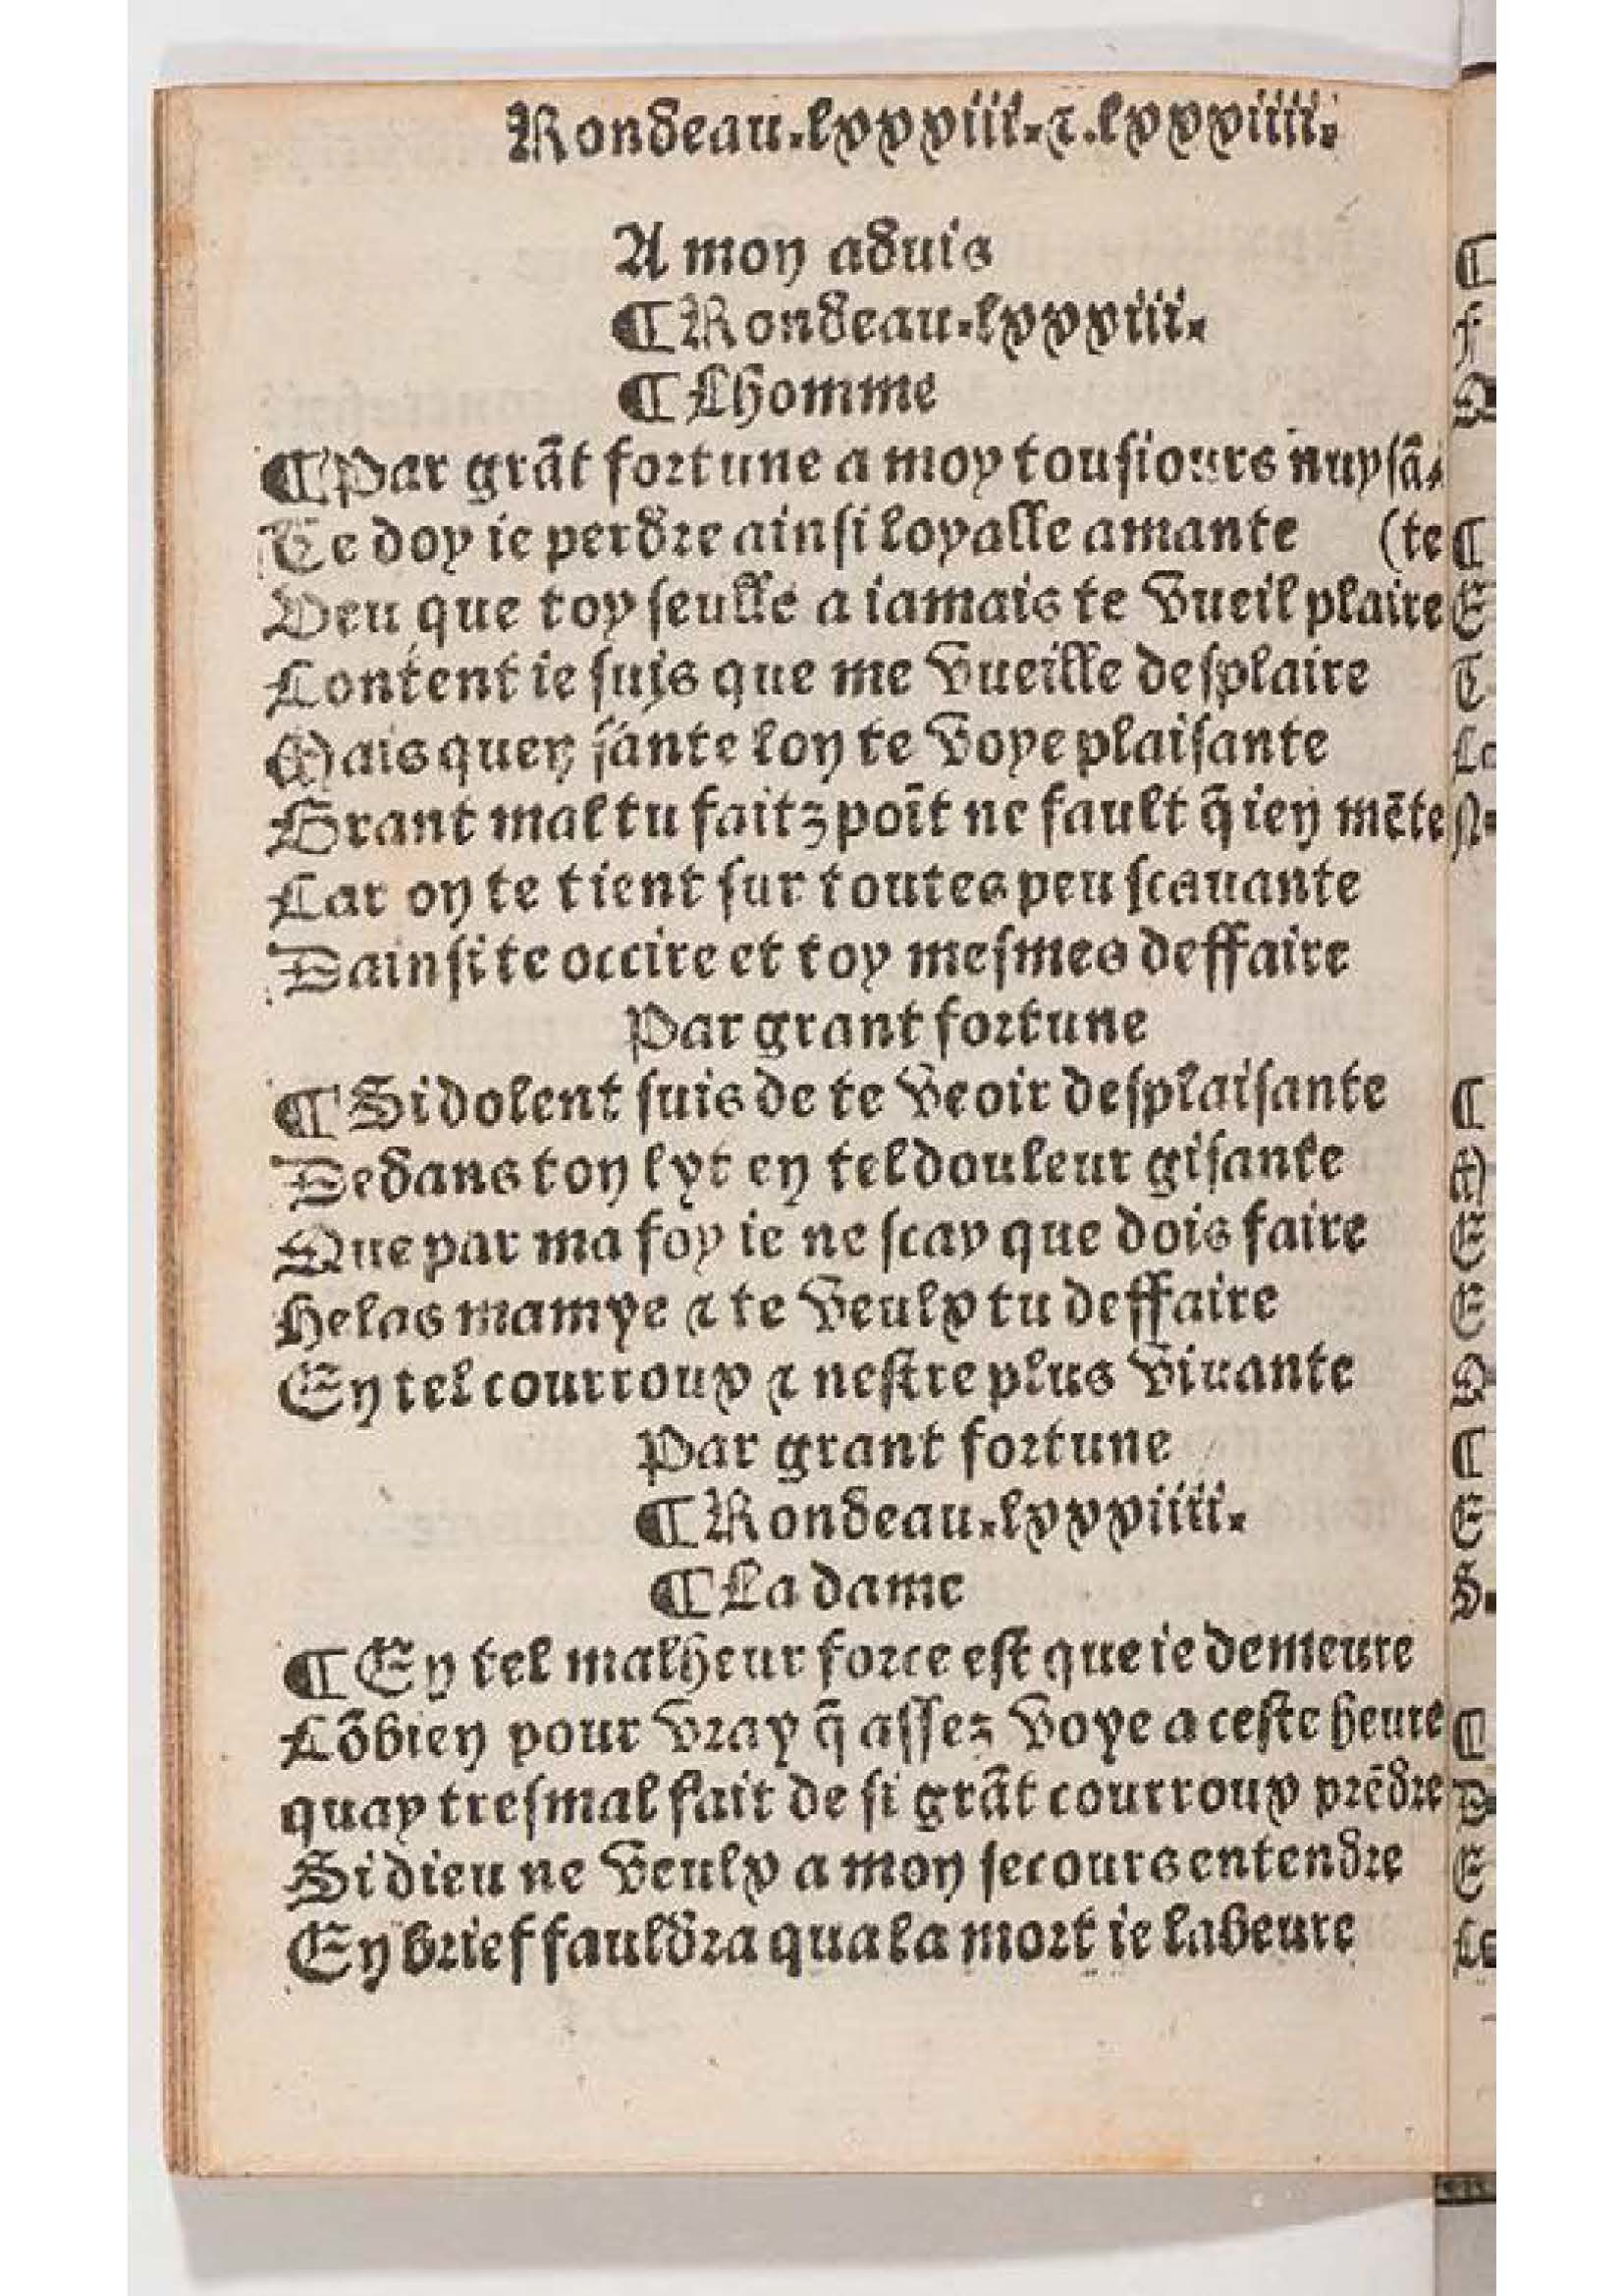 Rondeau.lxxxiii.⁊.lxxxiiii.
A mon aduis
¶Rondeau.lxxxiii.
¶Lhomme
¶Par grãt fortune a moy tousiours nuysã
Te doy ie perdre ainsi loyalle amante (te
Veu que toy seulle a iamais te vueil plaire
Content ie suis que me vueille desplaire
Mais quen sante lon te voye plaisante
Grant mal tu faitz poĩt ne fault q̃ ien mẽte
Car on te tient sur toutes peu scauante
Dainsi te occire et toy mesmes deffaire
Par grant fortune
¶Si dolent suis de te veoir desplaisante
Dedans ton lyt en tel douleur gisante
Que par ma foy ie ne scay que dois faire
Helas mamye ⁊ te veulx tu deffaire
En tel courroux ⁊ nestre plus viuante
Par grant fortune
¶Rondeau.lxxxiiii.
¶La dame
¶En tel malheur force est que ie demeure
Cõbien pour vray q̃ assez voye a ceste heure
quay tresmal fait de si grãt courroux prẽdre
Si dieu ne veulx a mon secours entendre
En brief fauldra qua la mort ie labeure